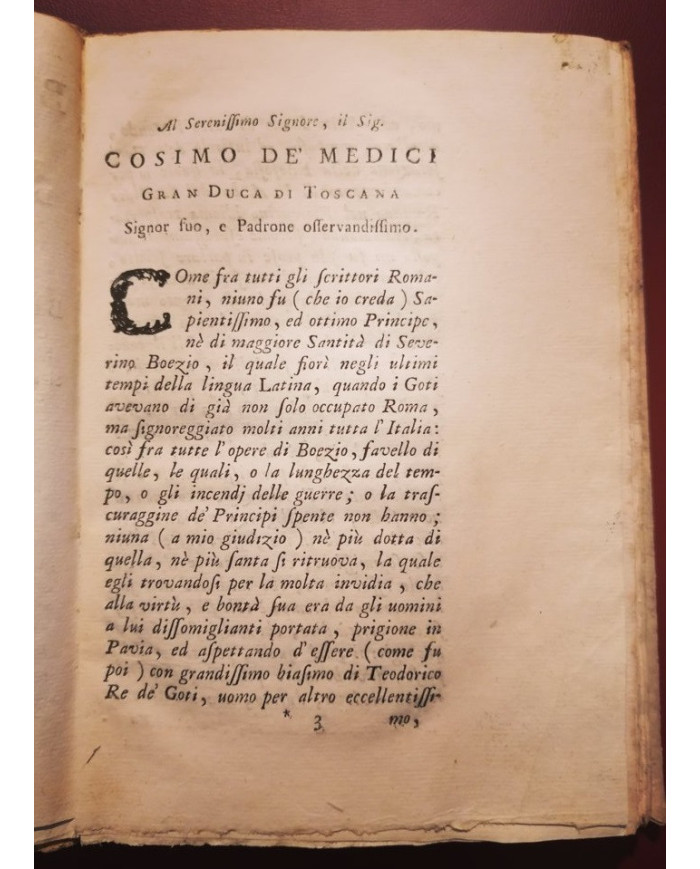 Al Sereniſſimo Signore, il Sig.
COSIMO DE' MEDICI
GRAN DUCA DI TOSCANA
Signor ſuo, e Padrone oſſervandiſſimo.
COme fra tutti gli ſcrittori Roma-
ni, niuno fu ( che io creda ) Sa-
pientiſſimo, ed ottimo Principe,
nè di maggiore Santità di Seve-
rino Boezio, il quale fiorì negli ultimi
tempi della lingua Latina, quando i Goti
avevano di già non ſolo occupato Roma,
ma ſignoreggiato molti anni tutta l'Italia:
così fra tutte l'opere di Boezio, favello di
quelle, le quali, o la lunghezza del tem-
po, o gli incendj delle guerre; o la traſ-
curaggine de' Principi ſpente non hanno;
niuna ( a mio giudizio ) nè più dotta di
quella, nè più ſanta ſi ritruova, la quale
egli trovandoſi per la molta invidia, che
alla virtù, e bontà ſua era da gli uomini
a lui diſſomiglianti portata, prigione in
Pavia, ed aſpettando d'eſſere ( come fu
poi ) con grandiſſimo biaſimo di Teodorico
Re de' Goti, uomo per altro eccellentiſſi-
* 3 mo,